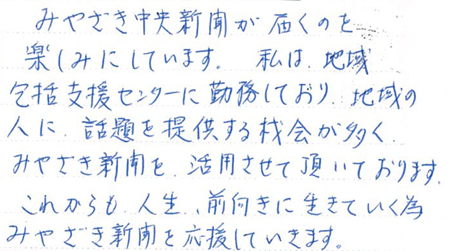 みやざき中央新聞が届くのを
楽しみにしています。私は、地域
包括支援センターに勤務しており、地域の
人に、話題を提供する機会が多く、
みやざき新聞を、活用させて頂いております。
これからも、人生、前向きに生きていく為
みやざき新聞を応援していきます。